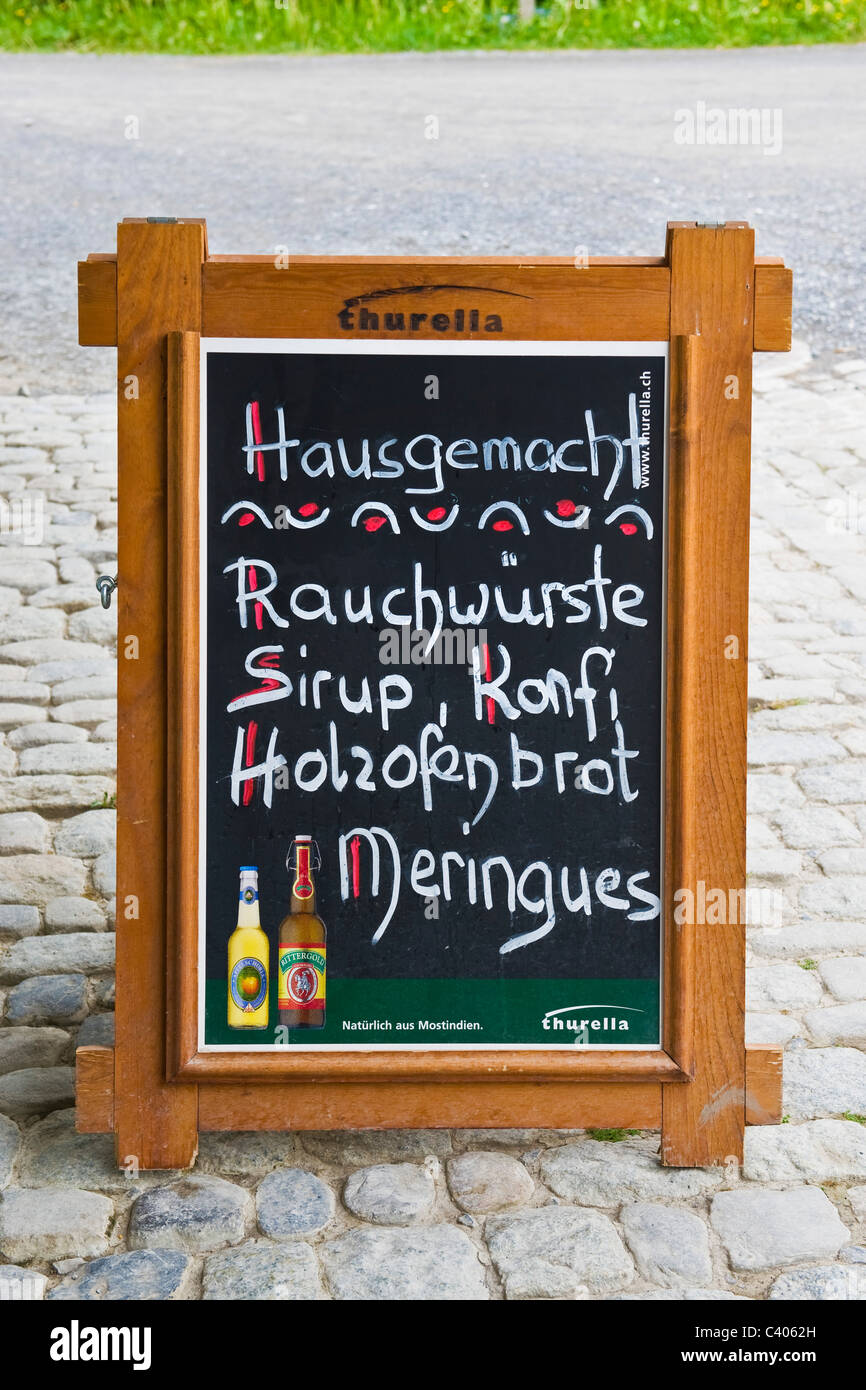 thurella
www.thurella.ch
Hausgemacht
Rauchwürste
Sirup, Konfi,
Holzofenbrot
Meringues
RITTERGOLD
Natürlich aus Mostindien.
thurella
a alamy stock photo
alamy
Image ID: C4062H
www.alamy.com